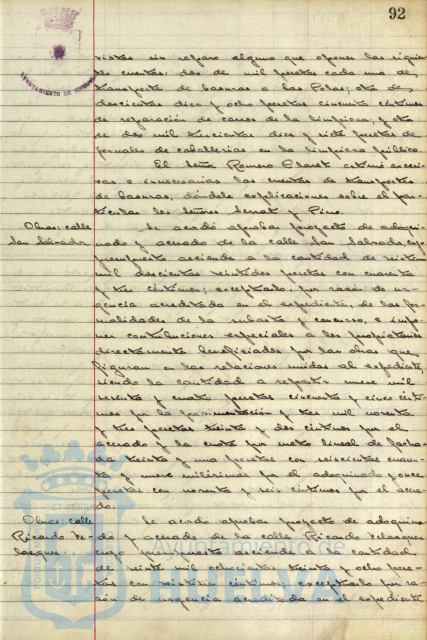 92
AYUNTAMIENTO DE
vistas sin reparo alguno que oponer las siguien
tes cuentas: dos de mil pesetas cada una de
transporte de basuras a las Polas; otra de
doscientas diez y ocho pesetas cincuenta céntimos
de reparación de carros de la limpieza; y otra
de dos mil trescientas diez y siete pesetas de
jornales de caballerías en la limpieza pública.
El Señor Romero Claret estimó excesi
vas e innecesarias las cuentas de transportes
de basuras, dándole explicaciones sobre el par
ticular los señores Serrat y Pino.
Obras: calle
San Salvador
Se acordó aprobar proyecto de adoqui
nado y acerado de la calle San Salvador, cuyo
presupuesto asciende a la cantidad de veintiun
mil doscientas veintidos pesetas con cuarenta
y tres céntimos; exceptuarlo, por razón de ur
gencia acreditada en el expediente, de las for
malidades de la subasta y concurso, e impo
ner contribuciones especiales a los propietarios
directamente beneficiados por las obras que
figuran en las relaciones unidas al expediente,
siendo la cantidad a repartir nueve mil
sesenta y cuatro pesetas cincuenta y cinco cénti
mos por la pavimentación y tres mil noventa
y tres pesetas treinta y dos céntimos por el
acerado y la cuota por metro lineal de facha
da treinta y una pesetas con seiscientas cuaren
ta y nueve milésimas por el adoquinado y once
pesetas con noventa y seis céntimos por el acera
do.
Obras: calle
Ricardo Ve-
lázquez
Se acordó aprobar proyecto de adoquina
do y acerado de la calle Ricardo Velázquez
cuyo presupuesto asciende a la cantidad
de veinte mil ochocientas treinta y ocho pese
tas con veintitrés céntimos; exceptuarlo por ra
zón de urgencia acreditada en el expediente
Ayuntamiento de
HUELVA